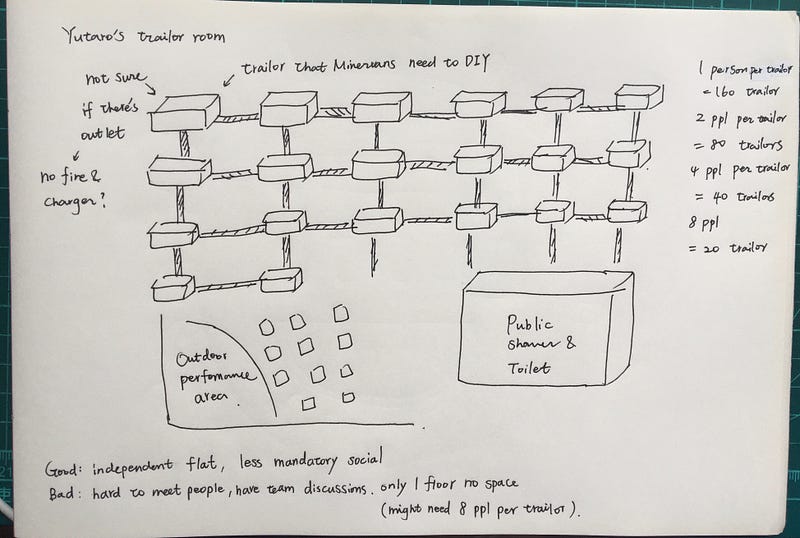 Yutaro's trailor room
trailor that Minervans need to DIY
not sure
if there's
outlet
no fire &
charger?
1 person per trailor
= 160 trailor
2 ppl per trailor
= 80 trailors
4 ppl per trailor
= 40 trailors
8 ppl
= 20 trailor
Outdoor
perfomance
area.
Public
shower &
Toilet
Good: independent flat, less mandatory social
Bad: hard to meet people, have team discussions. only 1 floor no space
(might need 8 ppl per trailor).